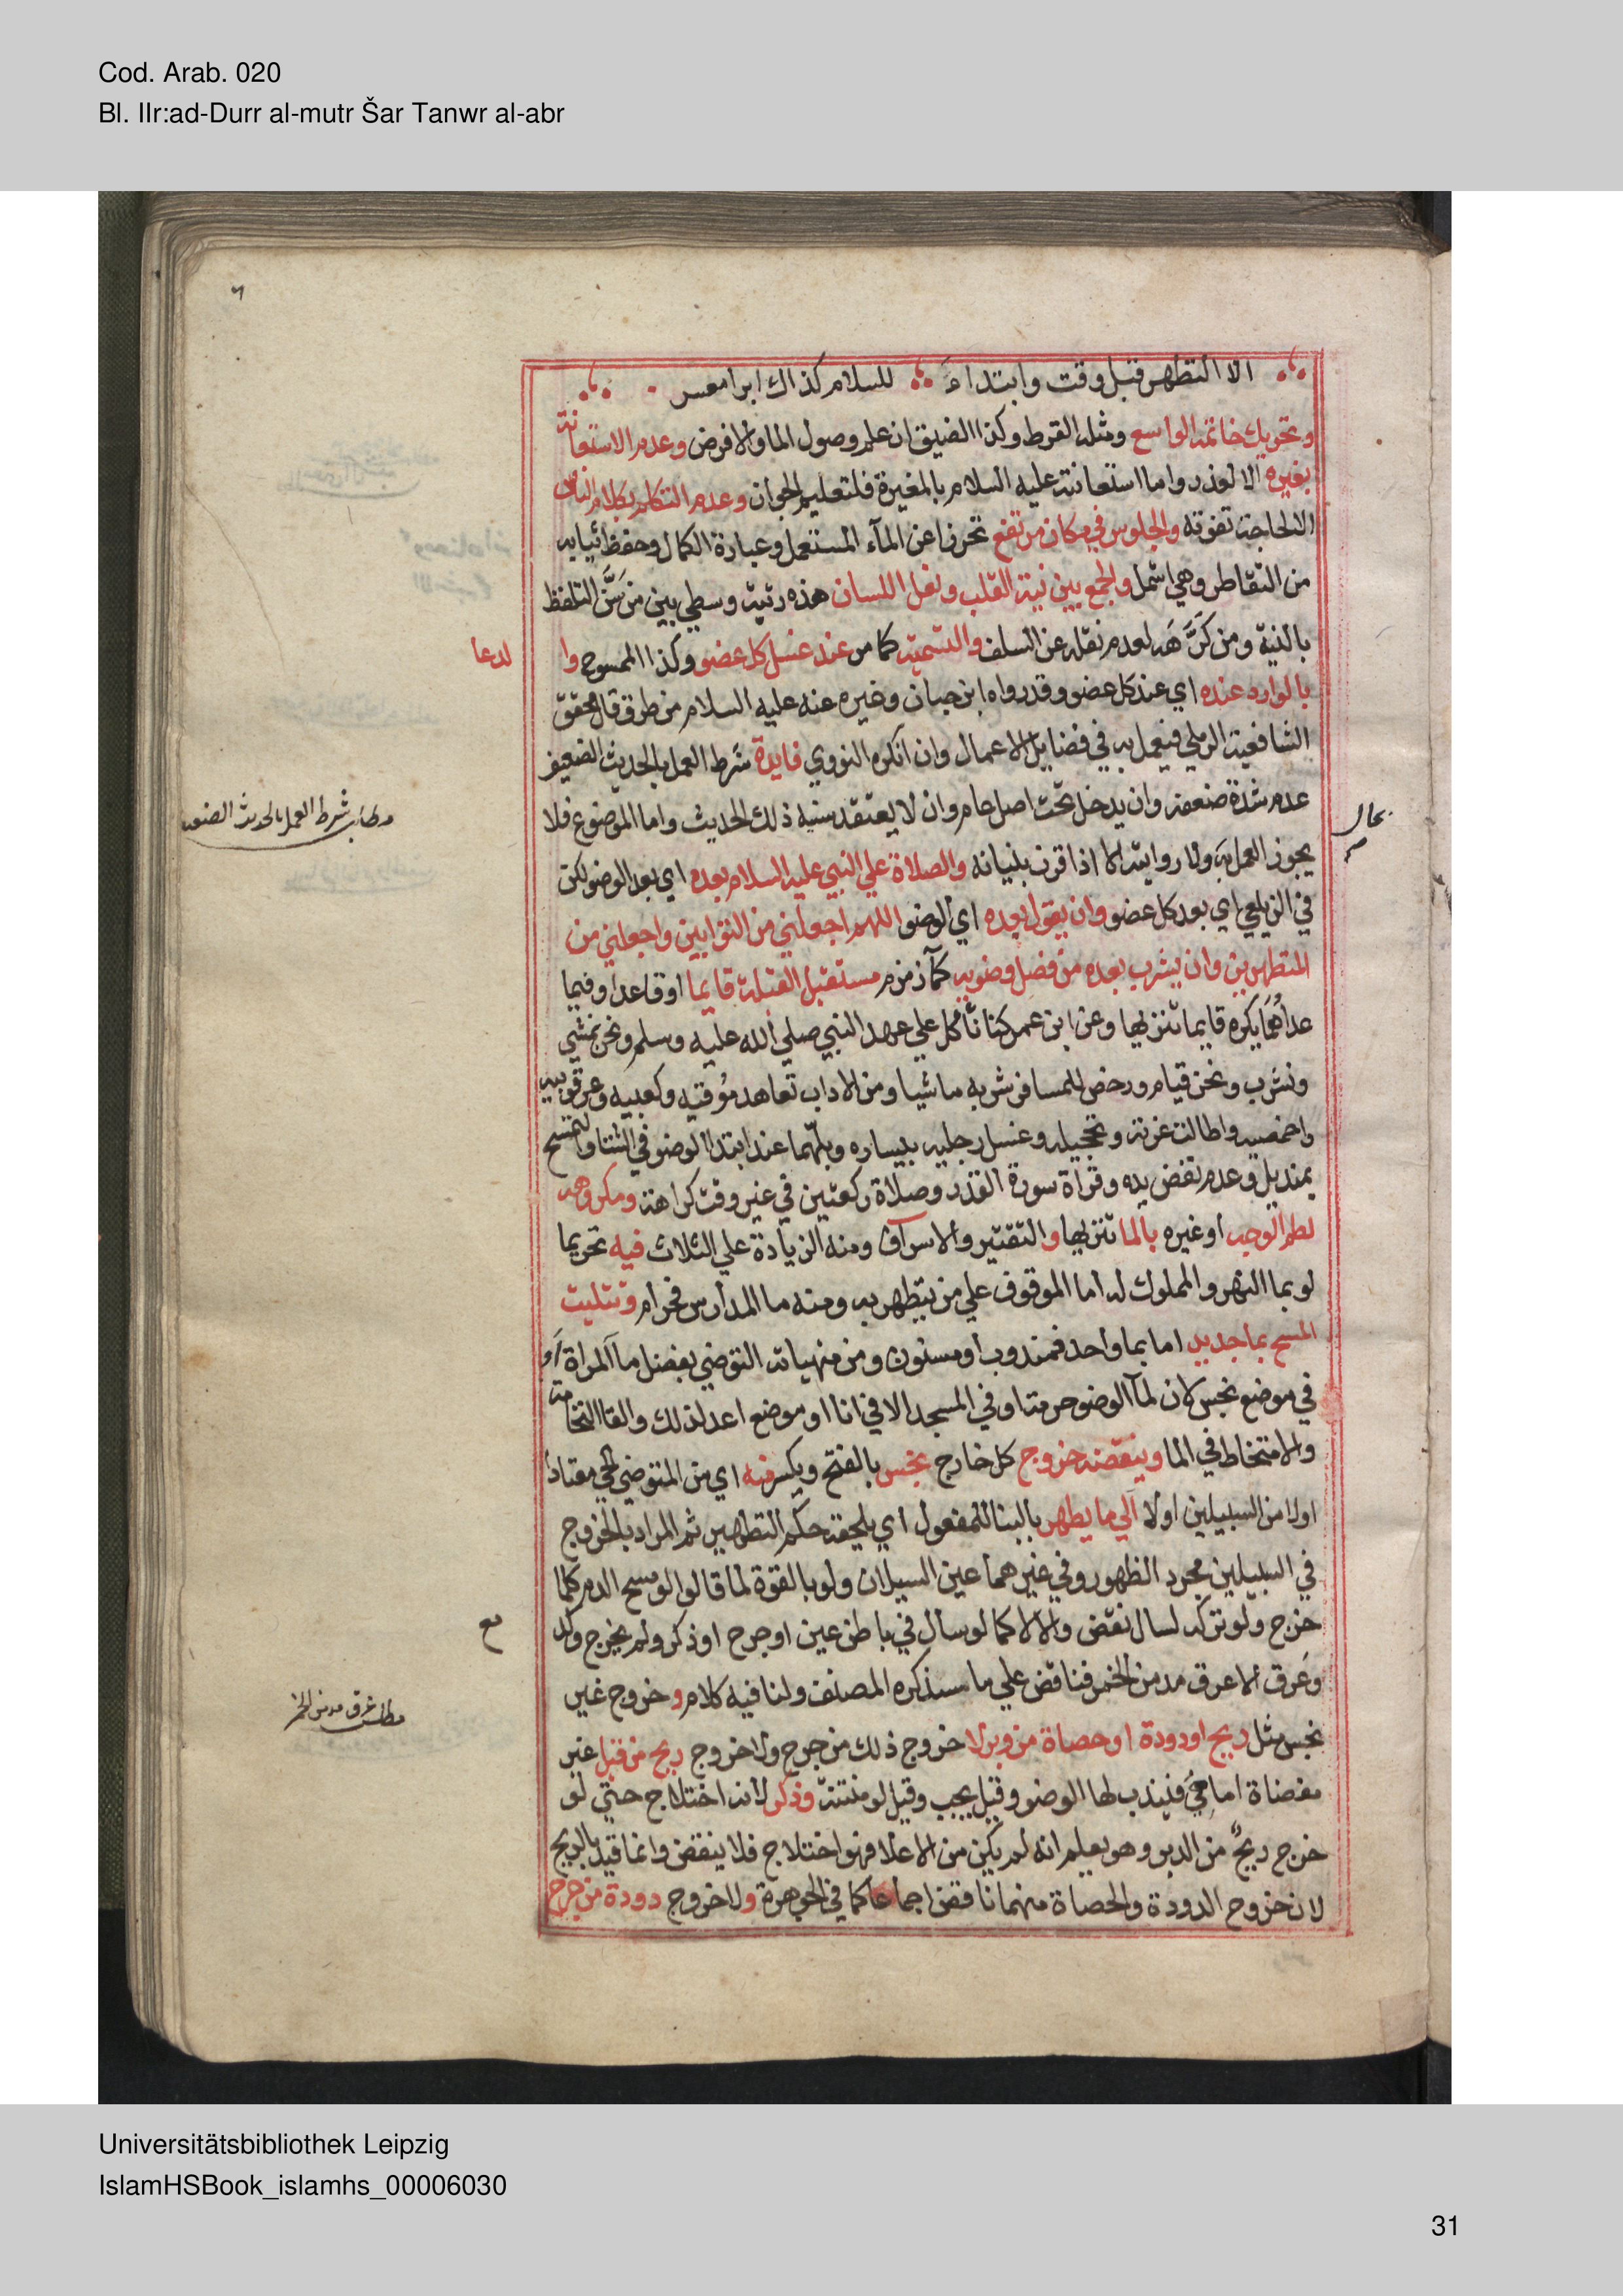 Cod. Arab. 020
Bl. IIr:ad-Durr al-mutr Šar Tanwr al-abr
٦
الا التطهر قبل وقت وابتداء للسلام كذاك ابرا معسر
وتحريك خاتمه الواسع ومثله القرط وكذا الضيق ان علم وصول الما والا فرض وعدم الاستعانة
بغيره الا لعذر واما استعانته عليه السلام بالمغيرة فلتعليم الجواز وعدم التكلم بكلام الناس
الا لحاجة تفوته والجلوس في مكان مرتفع تحرزا عن المآء المستعمل وعبارة الكمال وحفظ ثيابه
من التقاطر وهي اشمل والجمع بين نية القلب وفعل اللسان هذه رتبة وسطي بين من سَنَّ التلفظ
بالنية ومن كرَّهَه لعدم نقله عن السلف والتسمية كما مر عند غسل كل عضو وكذا الممسوح وا
لدعا
بالوارد عنده اي عند كل عضو وقد رواه ابن حبان وغيره عنه عليه السلام من طرق قال محقق
الشافعية الرملي فيعمل به في فضايل الاعمال وان انكره النووي فايدة شرط العمل بالحديث الضعيف
عدم شدة ضعفه وان يدخل تحت اصل عام وان لا يعتقد سنية ذلك الحديث واما الموضوع فلا
مطلب شرط العمل بالحديث الضعيف
بحال
يجوز العمل به ولا روايته الا اذا قرن ببيانه والصلاة علي النبي عليه السلام بعده اي بعد الوضو لكن
في الزيلعي اي بعد كل عضو وان يقول بعده اي الوضو اللهم اجعلني من التوابين واجعلني من
المتطهرين وان يشرب بعده من فضل وضويه كمآ زمزم مستقبل القبلة قايما او قاعدا وفيما
عداهُمَا يكره قايما تنزيها وعن ابن عمر كنا ناكل علي عهد النبي صلي الله عليه وسلم ونحن نمشي
ونشرب ونحن قيام ورخص للمسافر شربه ماشيا ومن الاداب تعاهد مُوقيه وكعبيه وعرقوبيه
واخمصيه واطالة غرته وتحجيله وغسل رجليه بيساره وبلّهما عند ابتدا الوضو في الشتا والتمسح
بمنديل وعدم نفض يده وقراة سورة القدر وصلاة ركعتين في غير وقت كراهة ومكروهه
لطم الوجه او غيره بالما تنزيها والتقتير والاسراف ومنه الزيادة علي الثلاث فيه تحريما
لو بما النهر والمملوك له اما الموقوف علي من يتطهر به ومنه ما المدارس فحرام وتثليث
المسح بما جديد اما بما واحد فمندوب او مسنون ومن منهياته التوضي بفضل ما المراة او
في موضع نجس لان لمآ الوضو حرمة او في المسجد الا في انا او موضع اعد لذلك والقا النخامة
والامتخاط في الما وينقضه خروج كل خارج نجس بالفتح ويكسر منه اي من المتوضي الحي معتادا
اولا من السبيلين اولا الي ما يطهر بالبنا للمفعول اي يلحقه حكم التطهير ثم المراد بالخروج
في السبيلين مجرد الظهور وفي غيرهما عين السيلان ولو بالقوة لما قالوا لو مسح الدم كلما
خرج ولو تركه لسال نقض والا لا كما لو سال في باطن عين او جرح او ذكر ولم يخرج وكد
مع
وعَرق الا عرق مدمن الخمر فناقض علي ما سيذكره المصنف ولنا فيه كلام وخروج غير
مطلب عرق مدمن الخمر
نجس مثل ريح او دودة او حصاة من دبر لا خروج ذلك من جرح ولا خروج ريح من قبل غير
مفضاة اما هِيَ فيندب لها الوضو وقيل يجب وقيل لو منتنة وذكر لانه اختلاج حتي لو
خرج ريحٌ من الدبر وهو يعلم انه لم يكن من الاعلا فهو اختلاج فلا ينقض وانما قيد بالريح
لان خروج الدودة والحصاة منهما ناقض اجماعا كما في الجوهرة ولا خروج دودة من جرح
Universitätsbibliothek Leipzig
IslamHSBook_islamhs_00006030
31